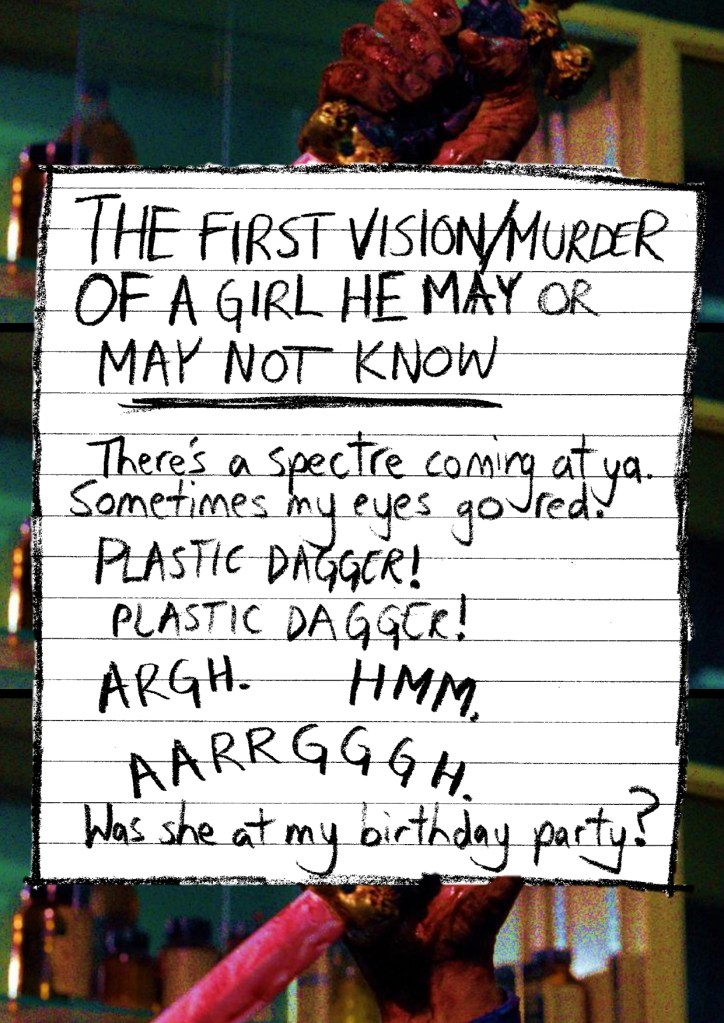 THE FIRST VISION/MURDER
OF A GIRL HE MAY OR
MAY NOT KNOW
There's a spectre coming at ya.
Sometimes my eyes go red.
PLASTIC DAGGER!
PLASTIC DAGGER!
ARGH. HMM.
AARRGGGH.
Was she at my birthday party?